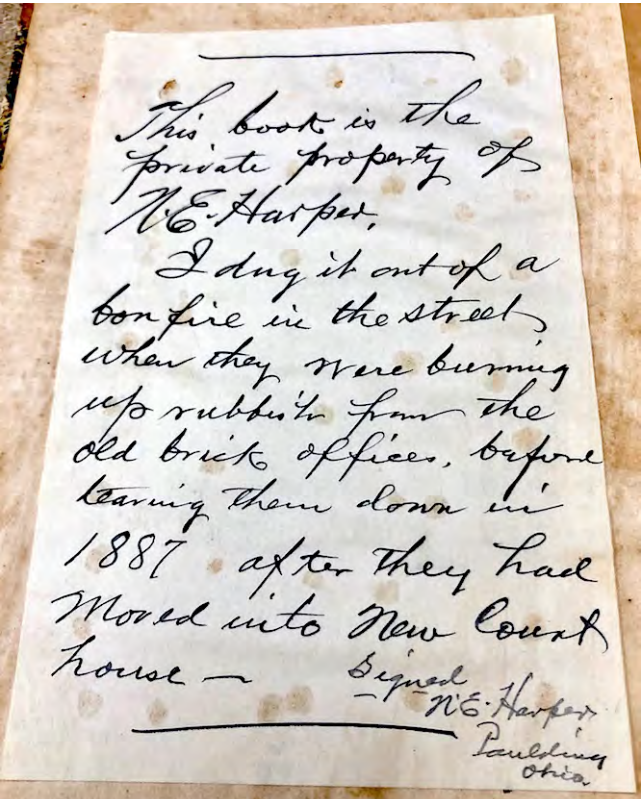 This book is the
private property of
N.E. Harper.
I dug it out of a
bonfire in the street,
when they were burning
up rubbish from the
old brick offices, before
tearing them down in
1887 after they had
moved into New Court
house —
Signed
N.E. Harper
Paulding
Ohio.